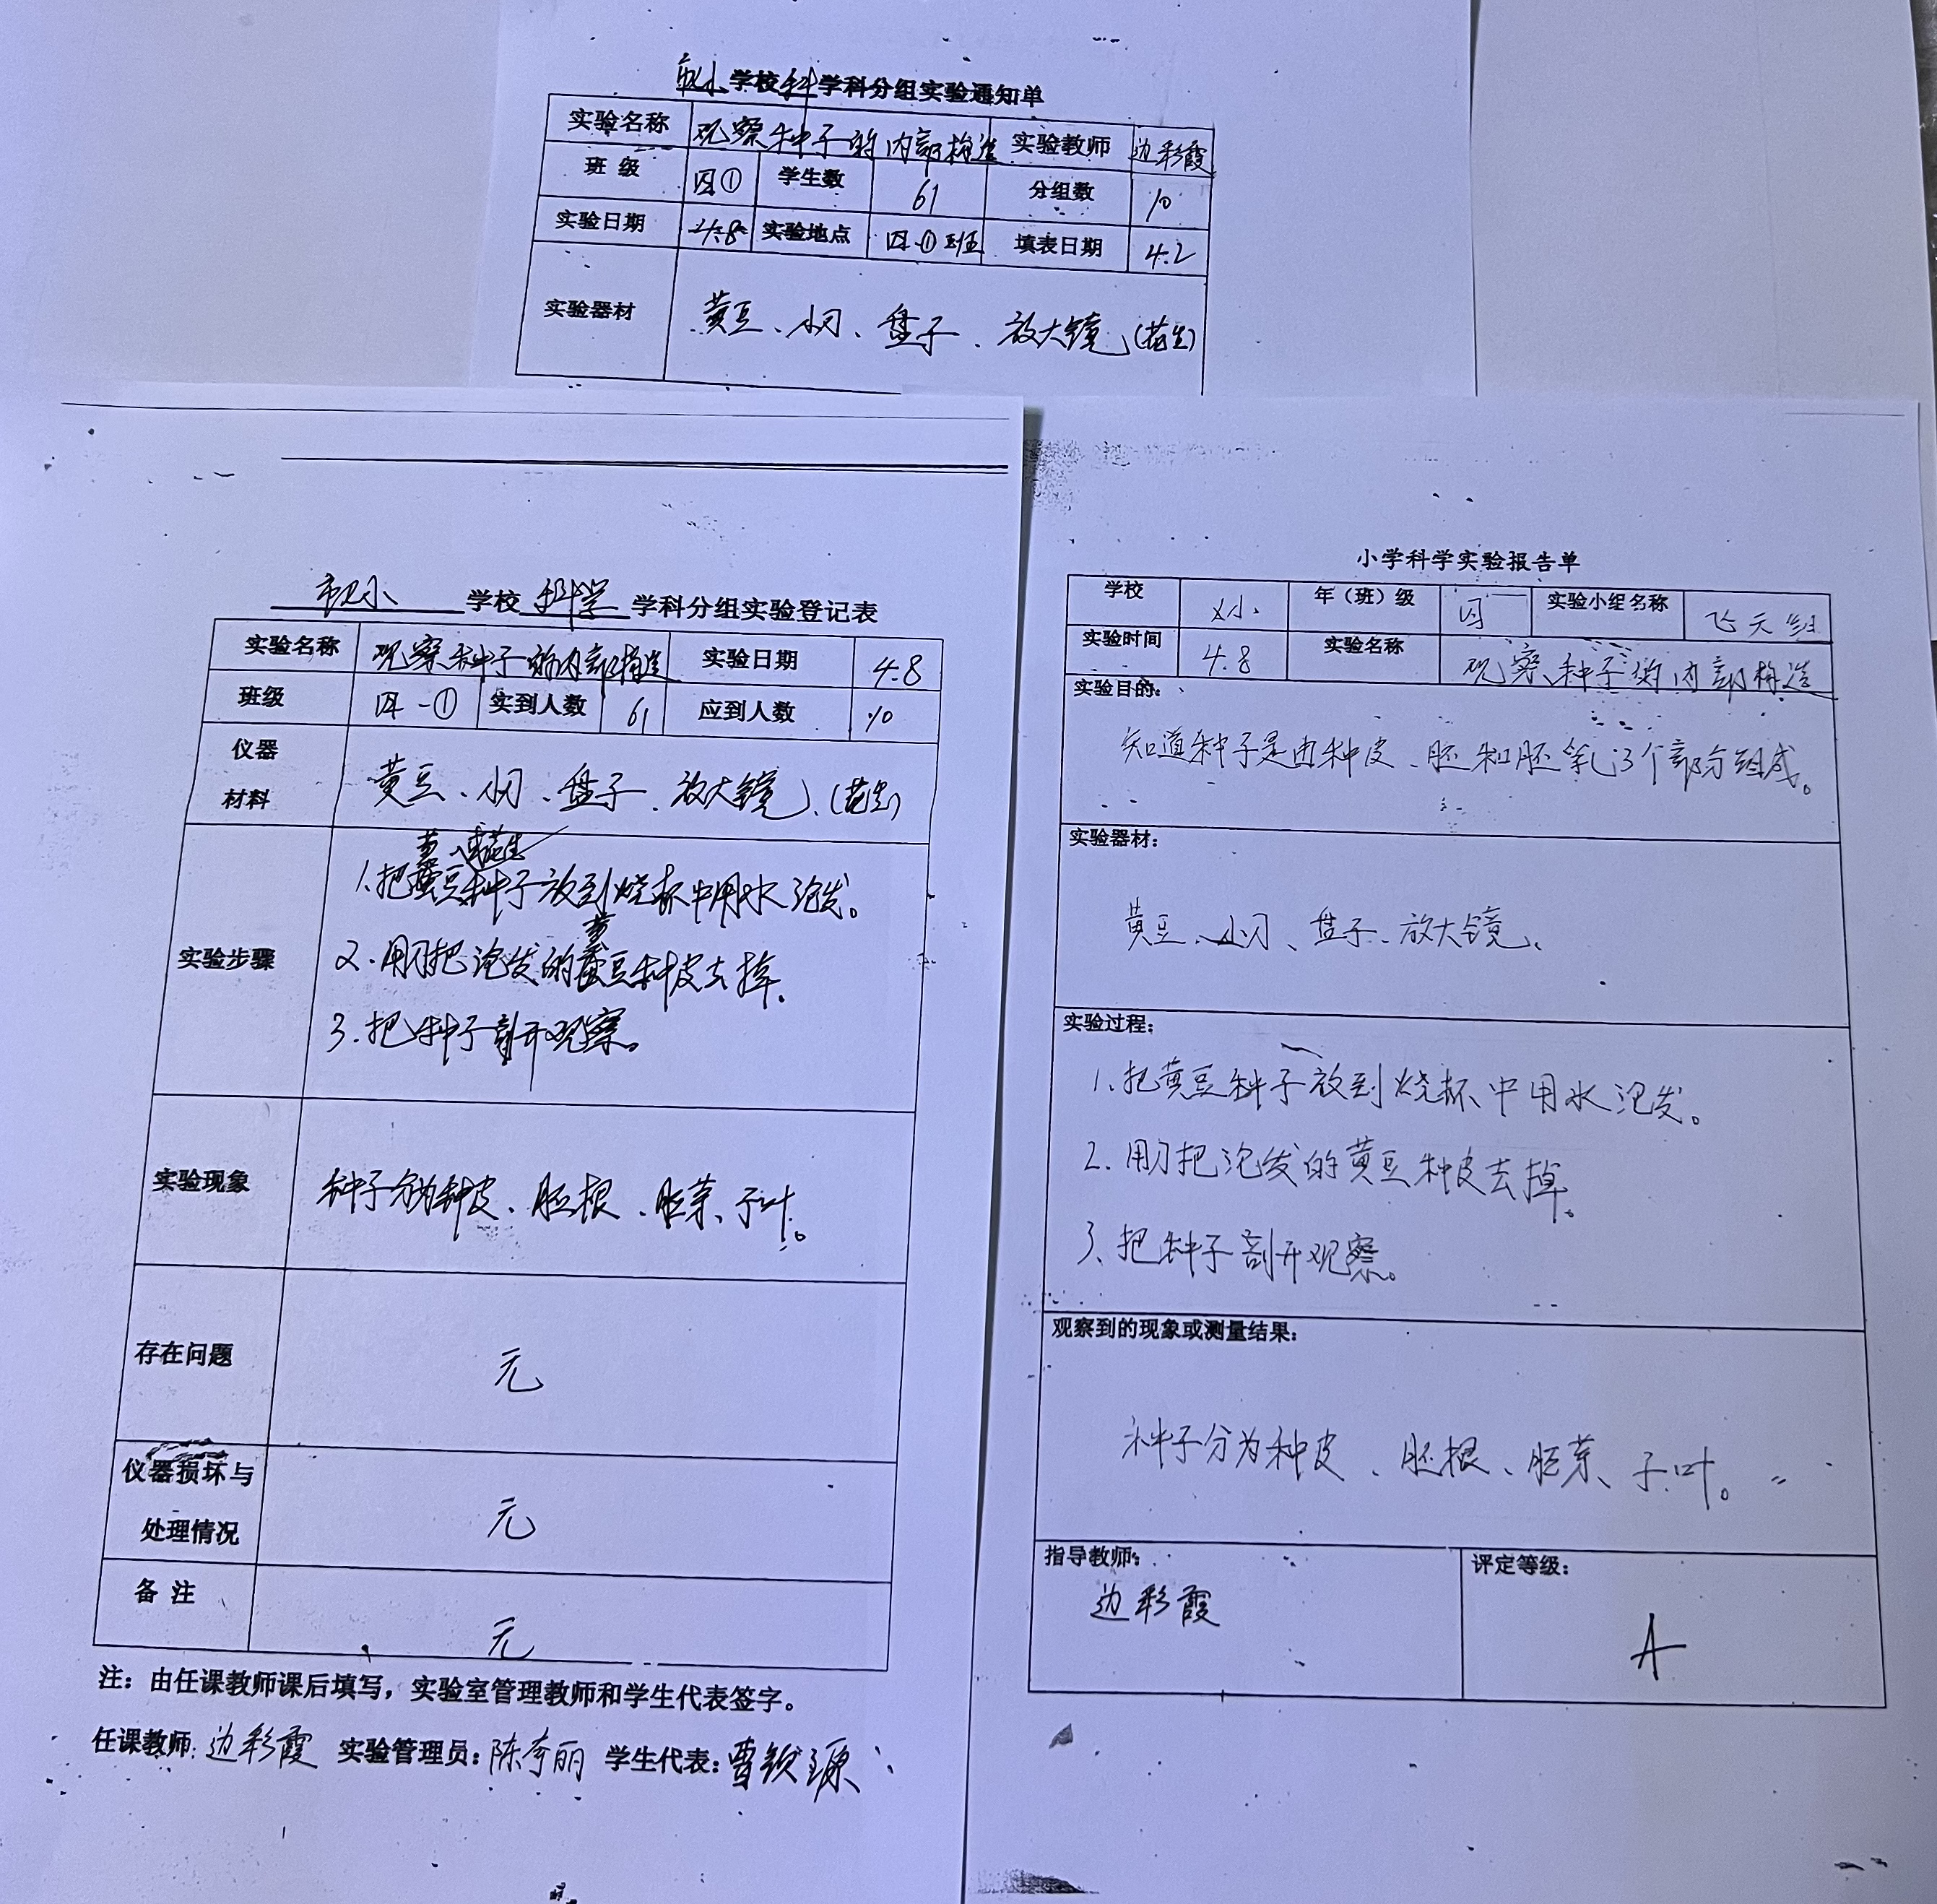 学校科学科分组实验通知单
实验名称 观察种子的内部构造 实验教师 边彩霞
班 级 四① 学生数 61 分组数 10
实验日期 4.8 实验地点 四-①班 填表日期 4.2
实验器材 黄豆、小刀、盘子、放大镜、(花生)
学校 科学 学科分组实验登记表
实验名称 观察种子的内部构造 实验日期 4.8
班级 四-① 实到人数 61 应到人数 10
仪器
材料
黄豆、小刀、盘子、放大镜、(花生)
实验步骤
黄 或花生
1.把黄豆种子放到烧杯中用水泡发。
黄
2.用刀把泡发的黄豆种皮去掉。
3.把种子剖开观察。
实验现象 种子分为种皮、胚根、胚芽、子叶。
存在问题 无
仪器损坏与
处理情况
无
备 注 无
注：由任课教师课后填写，实验室管理教师和学生代表签字。
任课教师：边彩霞 实验管理员：陈 丽 学生代表：曹 源
小学科学实验报告单
学校 年（班）级 四一 实验小组名称 飞天组
实验时间 4.8 实验名称 观察种子的内部构造
实验目的：
知道种子是由种皮、胚和胚乳3个部分组成。
实验器材：
黄豆、小刀、盘子、放大镜、
实验过程：
1.把黄豆种子放到烧杯中用水泡发。
2.用刀把泡发的黄豆种皮去掉。
3、把种子剖开观察。
观察到的现象或测量结果：
种子分为种皮、胚根、胚芽、子叶。
指导教师： 评定等级：
边彩霞 A